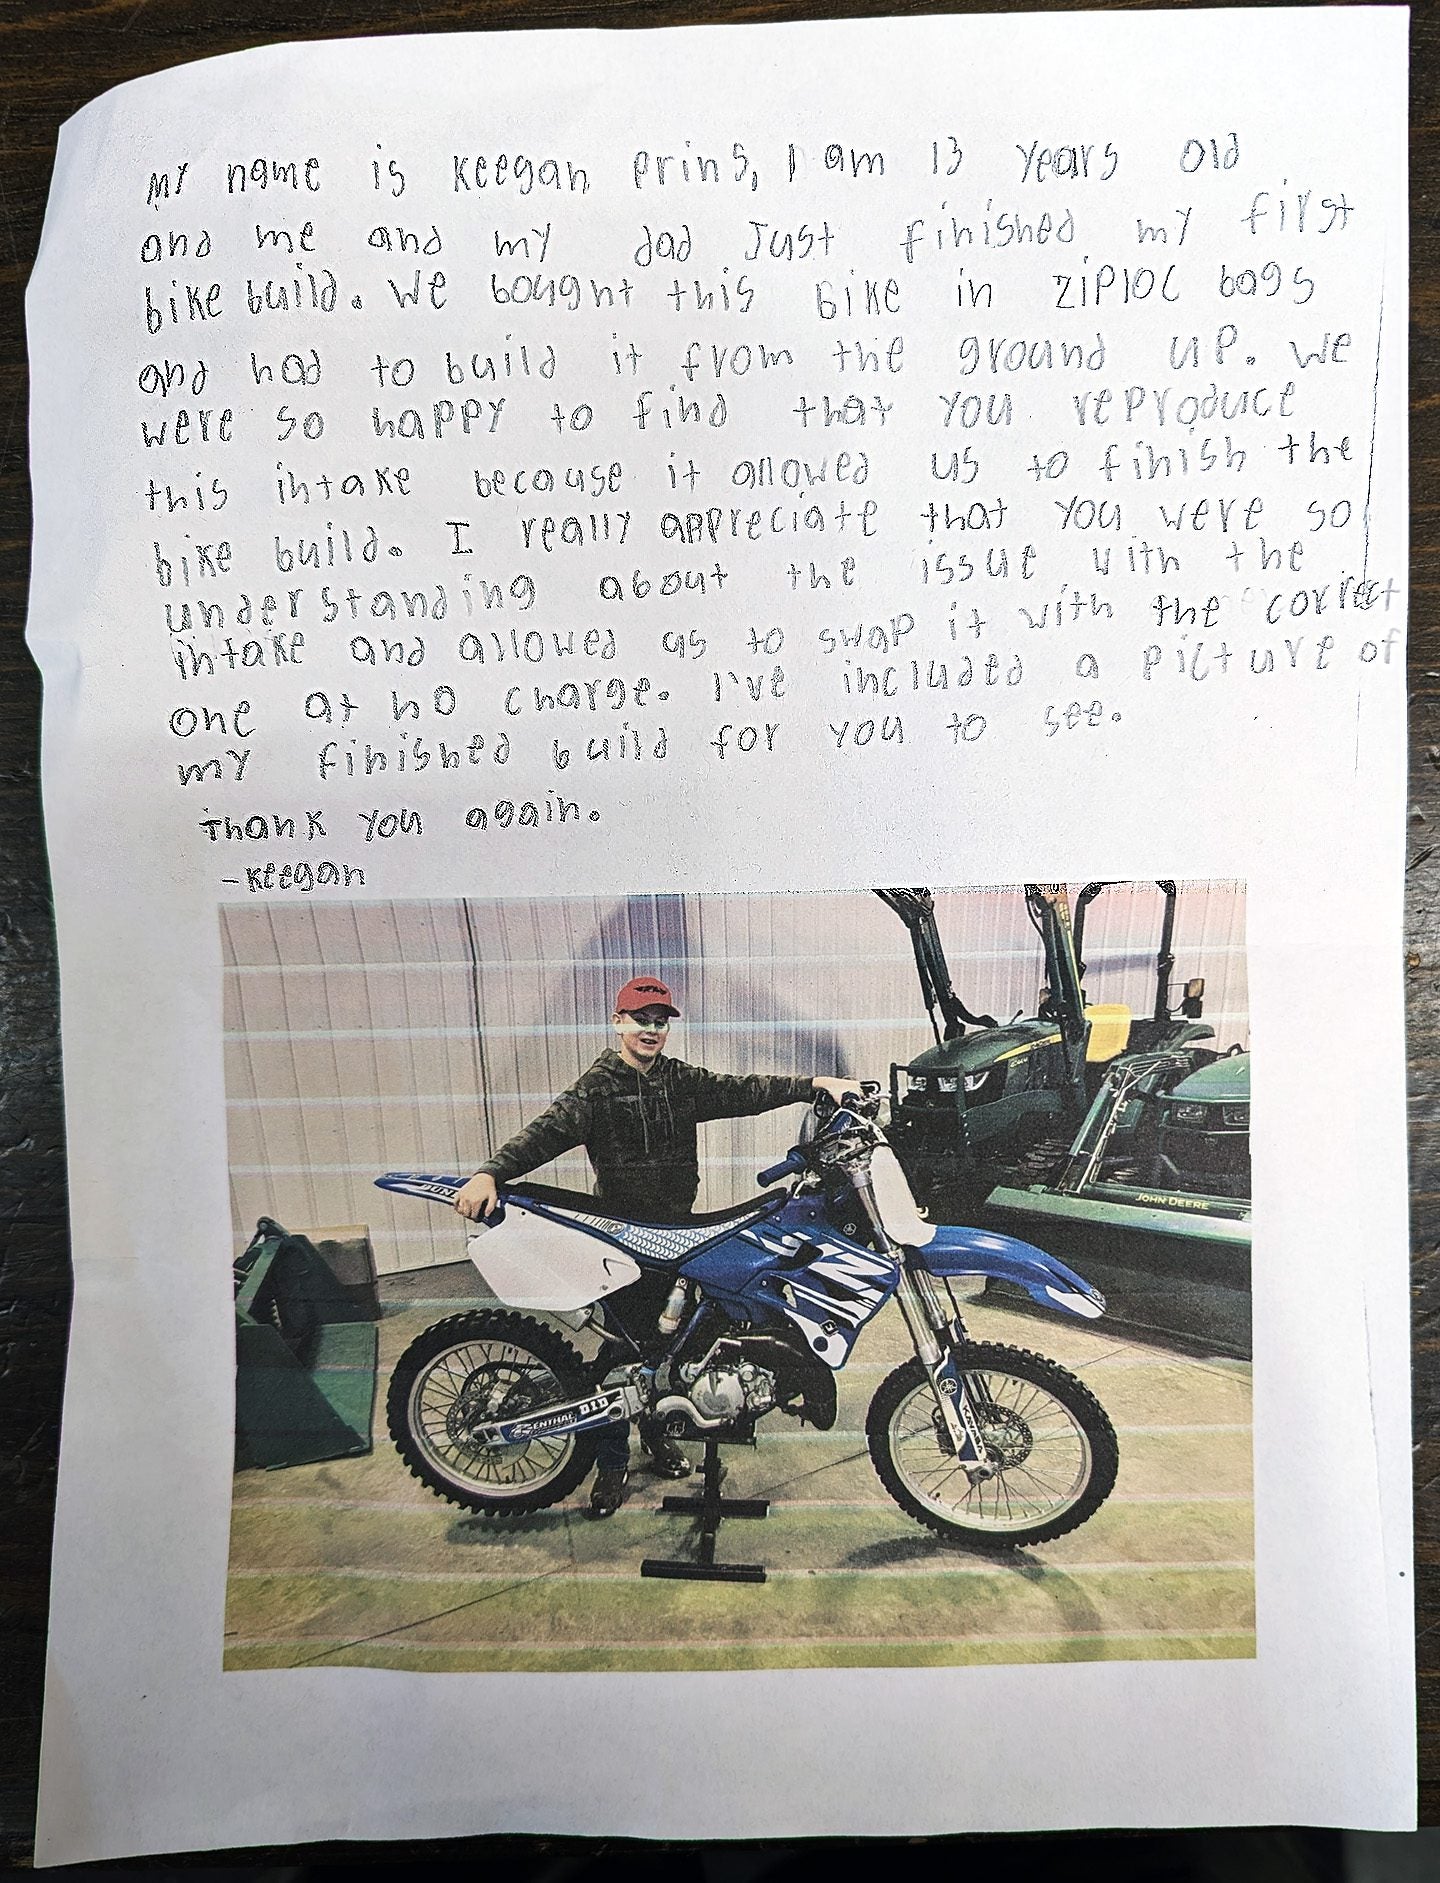 My name is Keegan Prins, I am 13 years old
and me and my dad Just finished my first
bike build. We bought this bike in ziploc bags
and had to build it from the ground up. We
were so happy to find that you reproduce
this intake because it allowed us to finish the
bike build. I really appreciate that you were so
understanding about the issue with the
intake and allowed us to swap it with the correct
one at no charge. I've included a picture of
my finished build for you to see.
Thank you again.
-Keegan
JOHN DEERE
RENTHAL
D.I.D
KAYABA